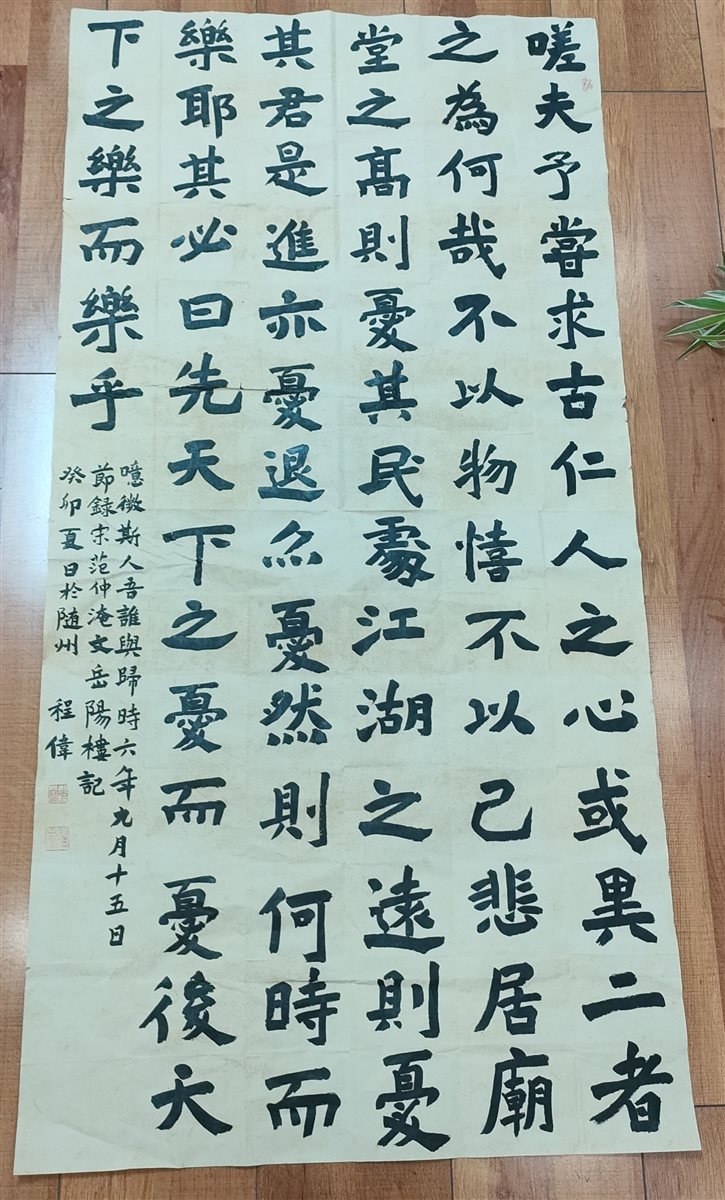 嗟夫予嘗求古仁人之心或異二者
之為何哉不以物憘不以己悲居廟
堂之髙則憂其民處江湖之遠則憂
其君是進亦憂退亦憂然則何時而
樂耶其必曰先天下之憂而憂後天
下之樂而樂乎
噫微斯人吾誰與歸時六年九月十五日
節録宋范仲淹文岳陽樓記
癸卯夏日於随州 程偉